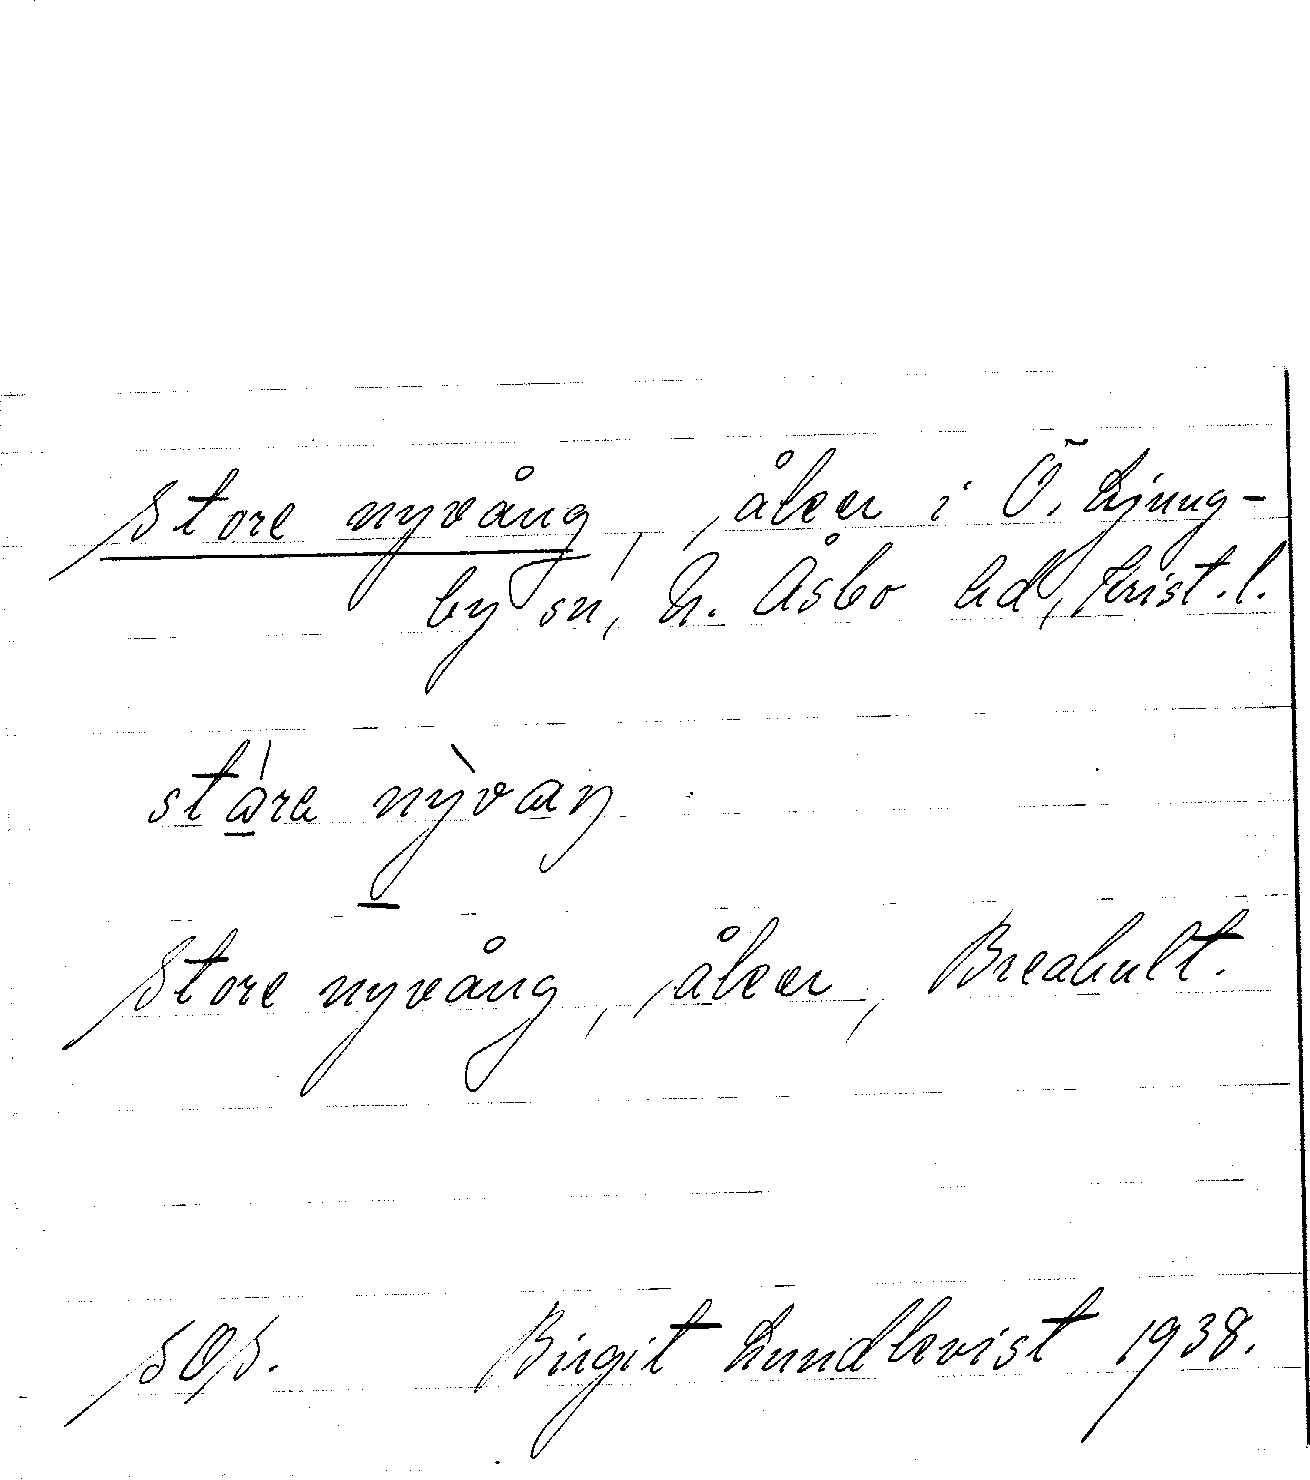 Store nyvång, åker i Ö. Ljung-
by sn, N. Åsbo hd, Krist. l.
Store nyvång, åker, Breahult.
SOS. Birgit Lundkvist 1938.